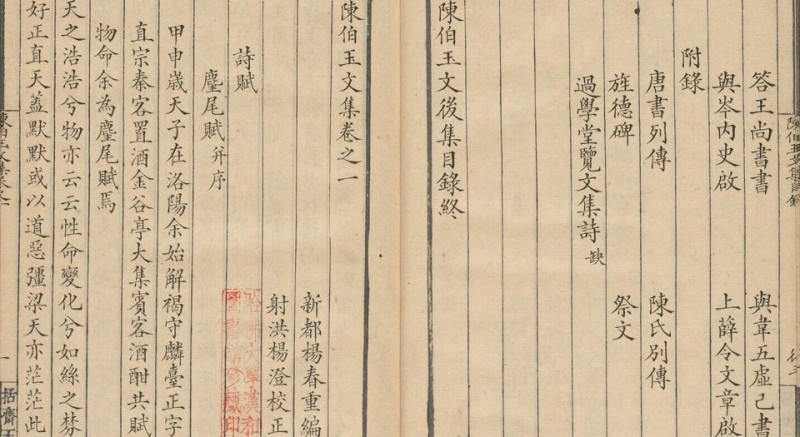 答王尚書書 與韋五虛己書
與岑內史啟 上薛令文章啟
附錄
唐書列傳 陳氏別傳
旌德碑 祭文
過學堂覽文集詩 缺
陳伯玉文後集目錄終
陳伯玉文集卷之一
新都楊春重編
射洪楊澄校正
哈佛大學漢和
圖書館珍藏印
詩賦
麈尾賦 并序
甲申歲天子在洛陽余始解褐守麟臺正字
直宗秦客置酒金谷亭大集賓客酒酣共賦
物命余為麈尾賦焉
天之浩浩兮物亦云云性命變化兮如絲之棼
好正直天蓋默默或以道惡彊梁天亦茫茫此